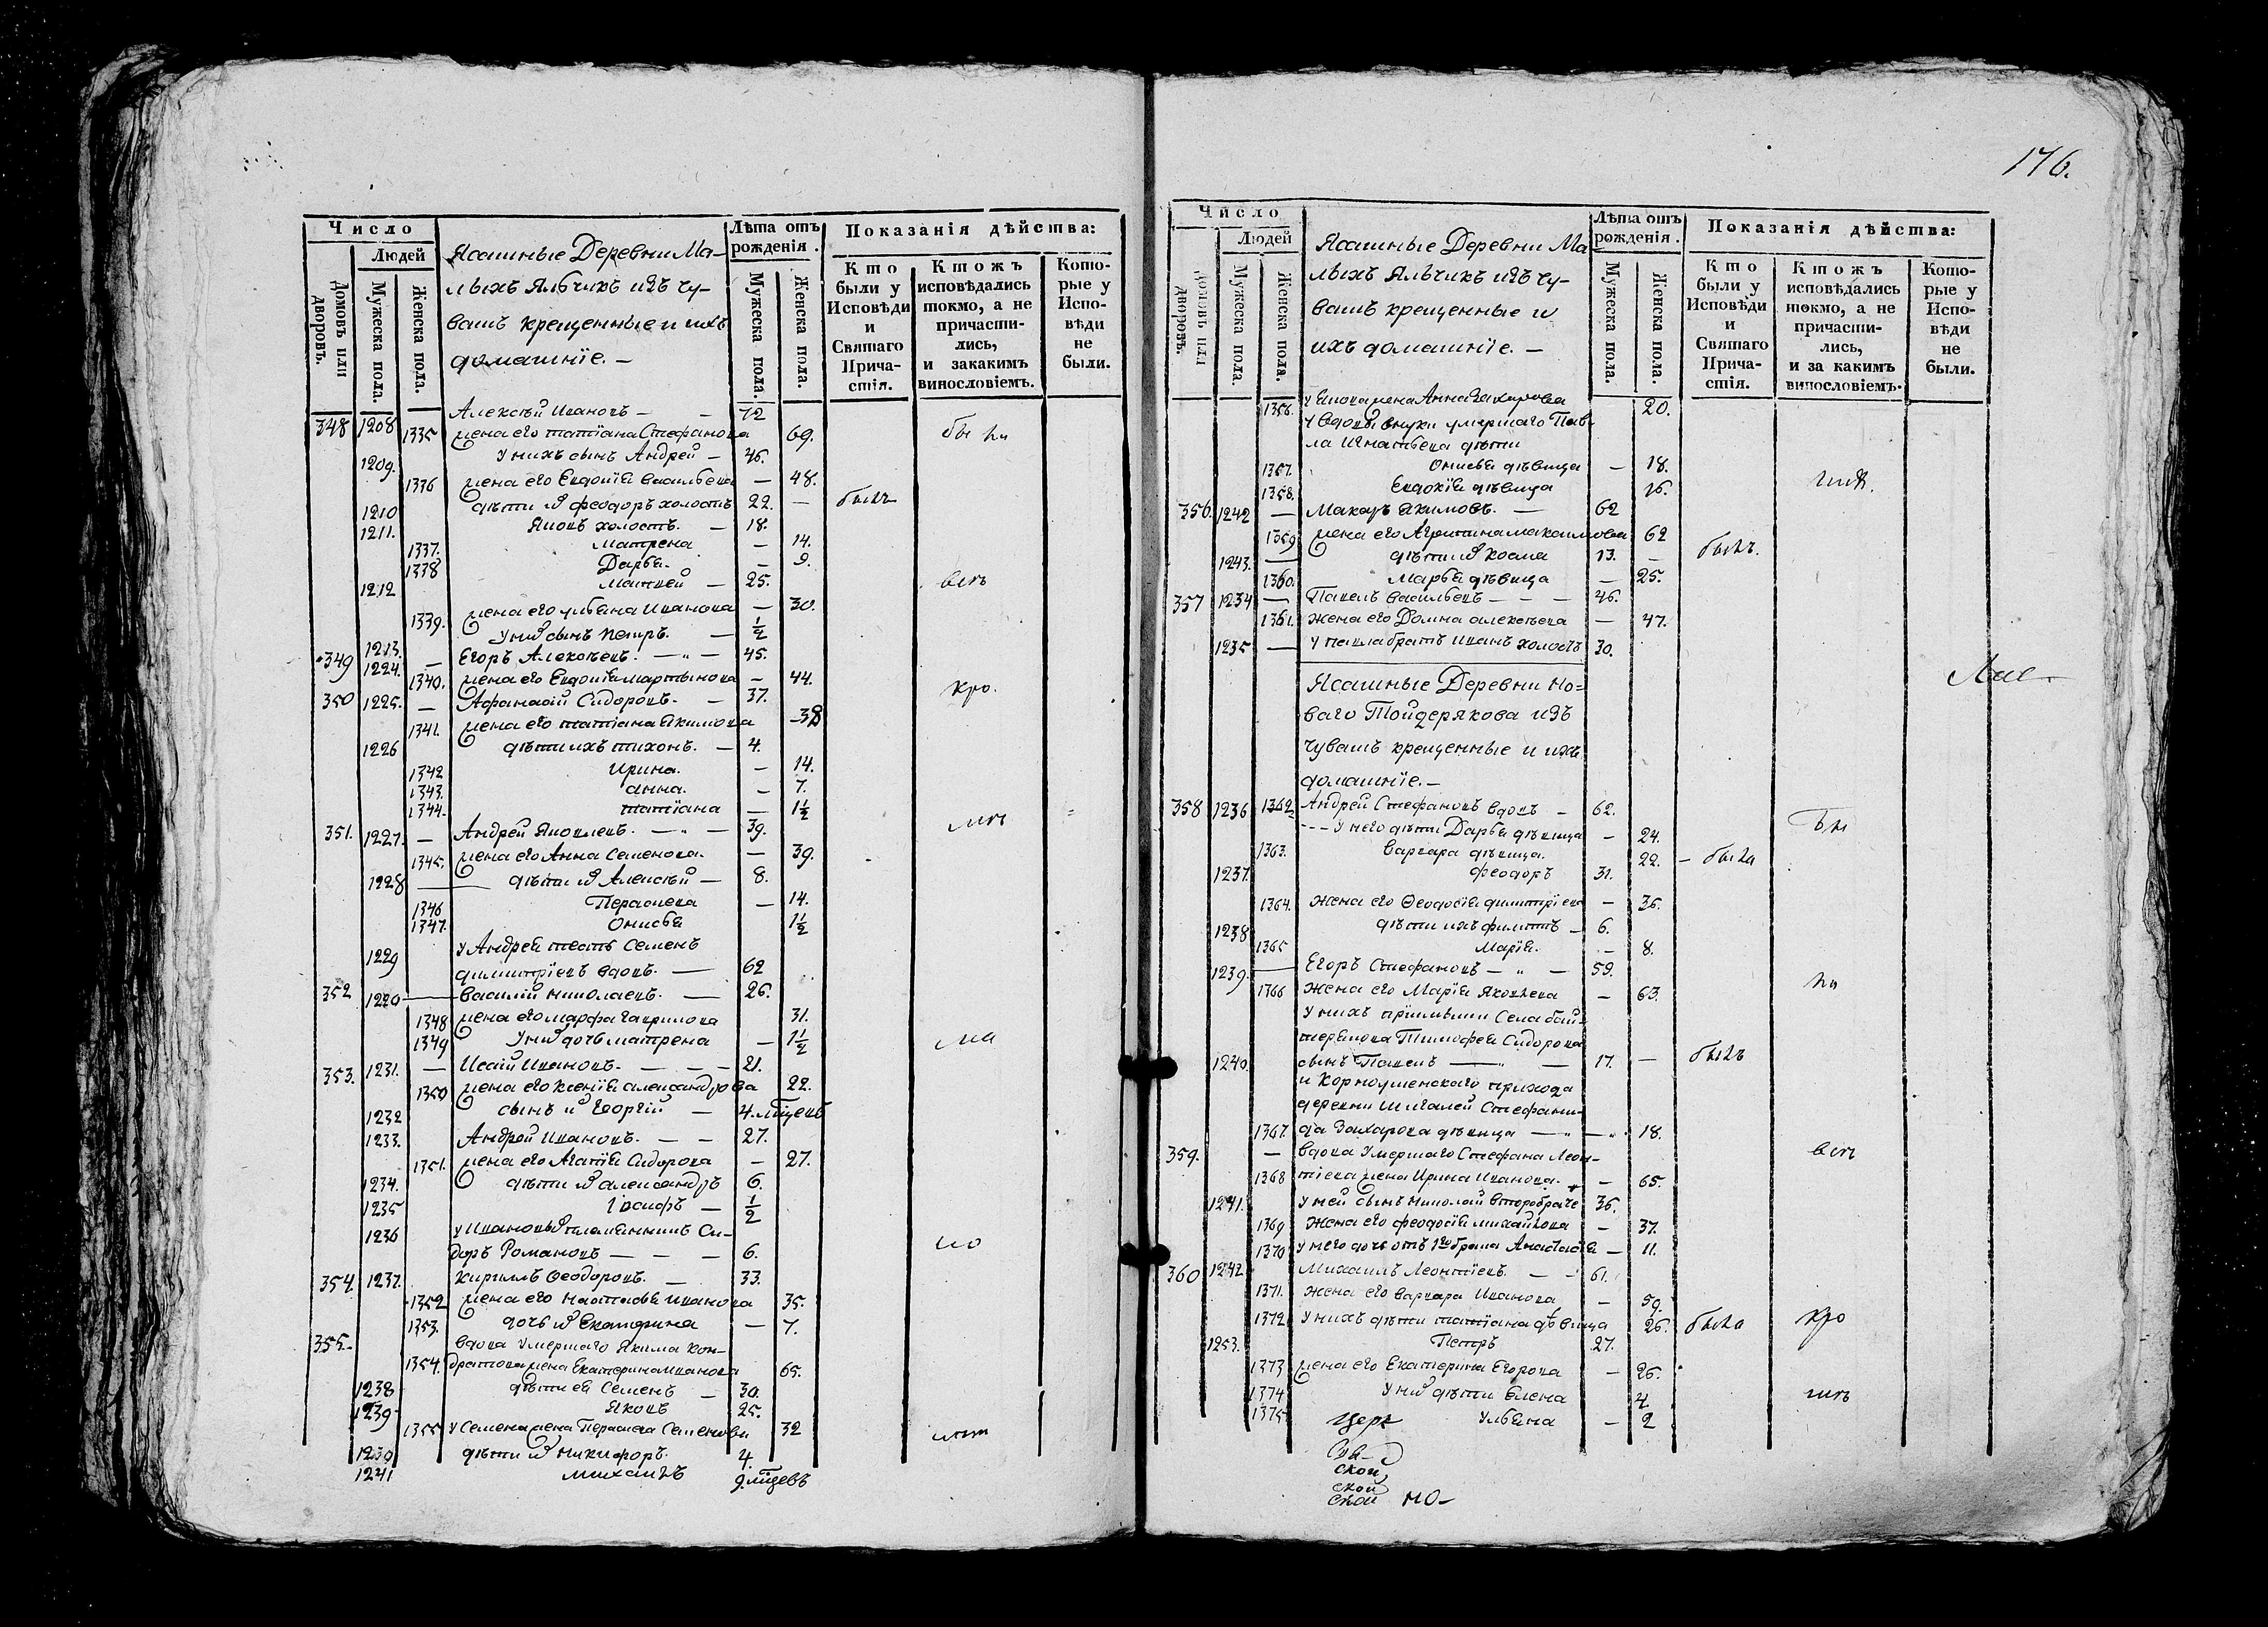 176.
Число
Людей
Домовъ или дворовъ.
Мужеска пола.
Женска пола.
Ясашные Деревни Ма-
лыхъ Яльчикъ изъ чу-
вашъ крещенные и ихъ
домашнїе. —
Лѣта отъ рожденія.
Мужеска пола.
Женска пола.
Показанія дѣйства:
Кто были у Исповѣди и Святаго Прича-стія.
Ктожъ исповѣдались токмо, а не причасти-лись, и закакимъ винословіемъ.
Кото-рые у Испо-вѣди не были.
348 1208 Алексѣй Ивановъ — — 72
1335 жена его татїана Стефанова 69. бы ли
1209. у нихъ сынъ Андрей — 46.
1336 жена его Евдокїя васильева — 48.
1210 дѣти их феодоръ холостъ 22. — былъ
1211. Яковъ холостъ. — 18.
1337. Матрена — 14.
1338 Дарья. — 9.
1212 Матвей — 25. всѣ
1339. жена его ульяна Иванова — 30.
1213. у них сынъ петръ. — ½
349 1224. — Егоръ Алексѣевъ. — „ — 45.
1340. жена его Евдокїя мартынова — 44.
350 1225. — Афанасїй Сидоровъ. — 37. кро.
1341. жена его татїана Якимова —38
1226 дѣти ихъ тихонъ. — 4.
1342 Ирина. — 14.
1343. анна. — 7.
1344. татїана — 1½
351. 1227. — Андрей Яковлевъ. — „ — 39. мѣ
1345. жена его Анна Семенова. — 39.
1228 — дѣти их Алексѣй — 8.
1346 Пераскева — 14.
1347. Онисья 1½
1229 у Андрея тесть Семенъ
димитрїевъ вдовъ. — 62
352 1220 — василїй николаевъ. — 26.
1348 жена его марфа гаврилова 31.
1349 у них дочь матрена — 1½ ма
353. 1231. — Исаїй Ивановъ. — — — 21.
1350 жена его Ксенїя александрова 22.
1232 сынъ их Георгїй — 4. мѣсецевъ
1233. Андрей Ивановъ. — — 27.
1351. жена его Агапїя Сидорова — 27.
1234. дѣти их александръ 6.
1235 Iосифъ — ½
1236 у Ивановых племянникъ Си-
доръ Романовъ — — — 6. ло
354. 1237. кириллъ Ѳеодоровъ. — 33.
1352 жена его наталья иванова 35.
1353. дочь их Екатерина — 7.
355. вдова умершаго Якима кон-
1354. дратова жена Екатерина иванова 65.
1238 дѣти ея Семенъ — 30.
1239 Яковъ 25.
1355 у Семена жена Пераскева Семенова 32
1240 дѣти их никифоръ. 4.
1241 михаилъ 9. мѣцевъ
Число
Людей
Домовъ или дворовъ.
Мужеска пола.
Женска пола.
Ясашные Деревни Ма-
лыхъ Яльчикъ изъ чу-
вашъ крещенные и
ихъ домашнїе. —
Лѣта отъ рожденія.
Мужеска пола.
Женска пола.
Показанія дѣйства:
Кто были у Исповѣди и Святаго Прича-стія.
Ктожъ исповѣдались токмо, а не причасти-лись, и за какимъ винословіемъ.
Кото-рые у Испо-вѣди не были.
1356. у Якова жена Анна Захарова 20.
у вдовы внуки умершаго Пав-
ла Игнатьева дѣти
1357. Онисья дѣвица — 18.
1358. Евдокїя дѣвица 16.
356. 1242 — Макаръ Якимовъ. — 62
1359 жена его Агрипина максимова 62
1243. — дѣти их козма 13. — былъ.
1360. Марья дѣвица — 25.
357 1234 — Павелъ васильевъ — — — 46.
1361. жена его Домна алексѣева — 47.
1235 — у павла братъ Иванъ холостъ 30.
Ясашные Деревни Но-
ваго Тойдерякова изъ
чувашъ крещенные и ихъ
домашнїе. —
358 1236 1362 Андрей Стефановъ вдовъ — 62.
— у него дѣти Дарья дѣвица — 24.
1363. варвара дѣвица. 22. — была
1237. феодоръ 31.
1364. жена его Ѳеодосїя димитрїева — 36.
1238 дѣти ихъ филиппъ — 6.
1365 Марїя. — 8.
1239. — Егоръ Стефановъ — „ — 59.
1366 жена его Марїя Яковлева — 63. ли
у нихъ прїимыши Села бай-
терякова Тимофея Сидорова
1240. сынъ Павелъ — 17. — былъ
и корноушенскаго прихода
деревни Шигалей Стефани-
1367. да Захарова дѣвица — „ — 18.
359. — вдова умершаго Стефана Леон- всѣ
1368 тїева жена Ирина Иванова. — 65.
1241. у ней сынъ николай второбраче 36.
1369 жена его феодосїя михайлова — 37.
1370 у него дочь отъ 1го брака Анастасїя — 11.
360 1242 Михаилъ Леонтїевъ. — — 61.
1371. жена его варвара Иванова — 59.
1372 у нихъ дѣти татїана дѣвица 26. была кро
1253. Петръ 27.
1373 жена его Екатерина Егорова — 26.
1374 у них дѣти Елена 4.
1375 ульяна — 2
церк
ской
ской
ской но-